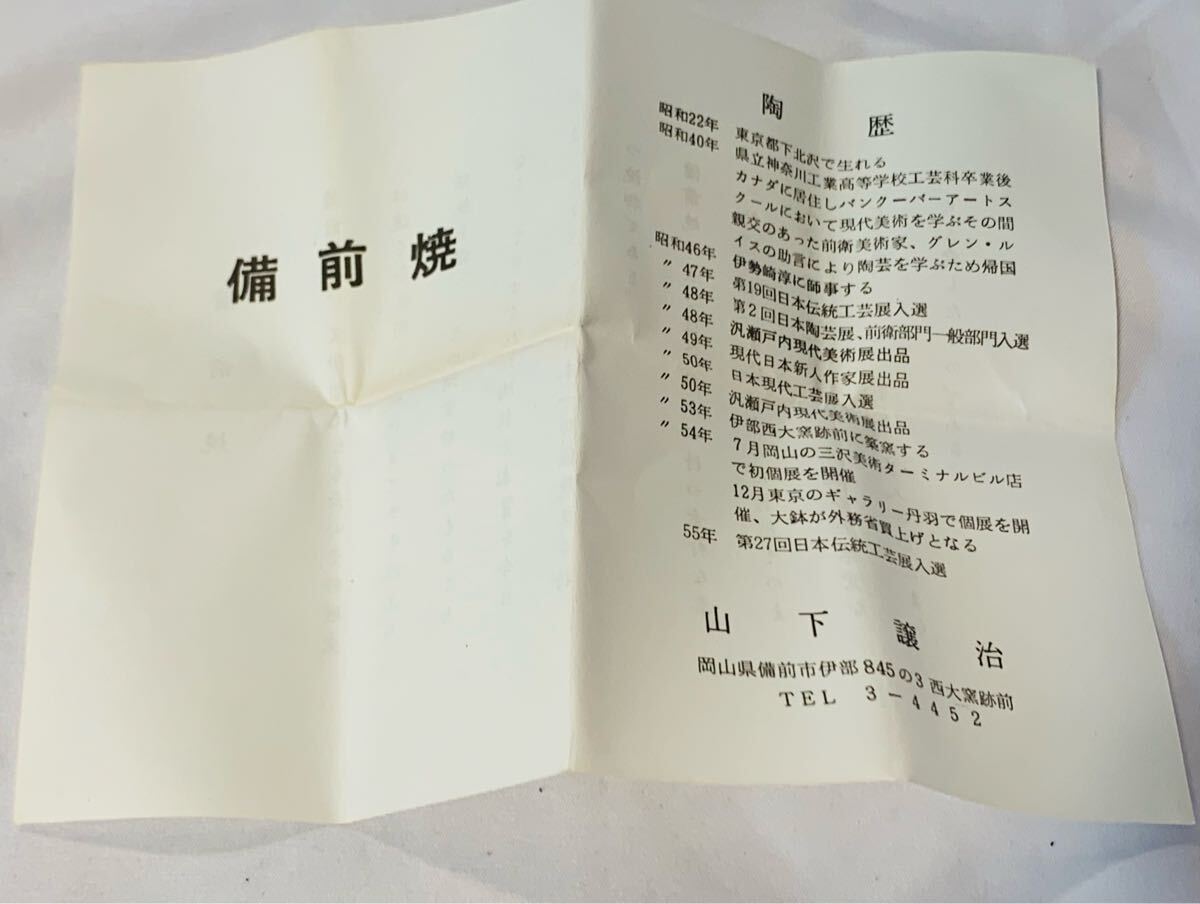 備前焼
陶歴
昭和22年 東京都下北沢で生れる
昭和40年 県立神奈川工業高等学校工芸科卒業後
カナダに居住しバンクーバーアートス
クールにおいて現代美術を学ぶその間
親交のあった前衛美術家、グレン・ル
イスの助言により陶芸を学ぶため帰国
昭和46年 伊勢崎淳に師事する
〃 47年 第19回日本伝統工芸展入選
〃 48年 第2回日本陶芸展、前衛部門一般部門入選
〃 48年 汎瀬戸内現代美術展出品
〃 49年 現代日本新人作家展出品
〃 50年 日本現代工芸展入選
〃 50年 汎瀬戸内現代美術展出品
〃 53年 伊部西大窯跡前に築窯する
〃 54年 7月岡山の三沢美術ターミナルビル店
で初個展を開催
12月東京のギャラリー丹羽で個展を開
催、大鉢が外務省買上げとなる
55年 第27回日本伝統工芸展入選
山下譲治
岡山県備前市伊部845の3 西大窯跡前
TEL 3-4452